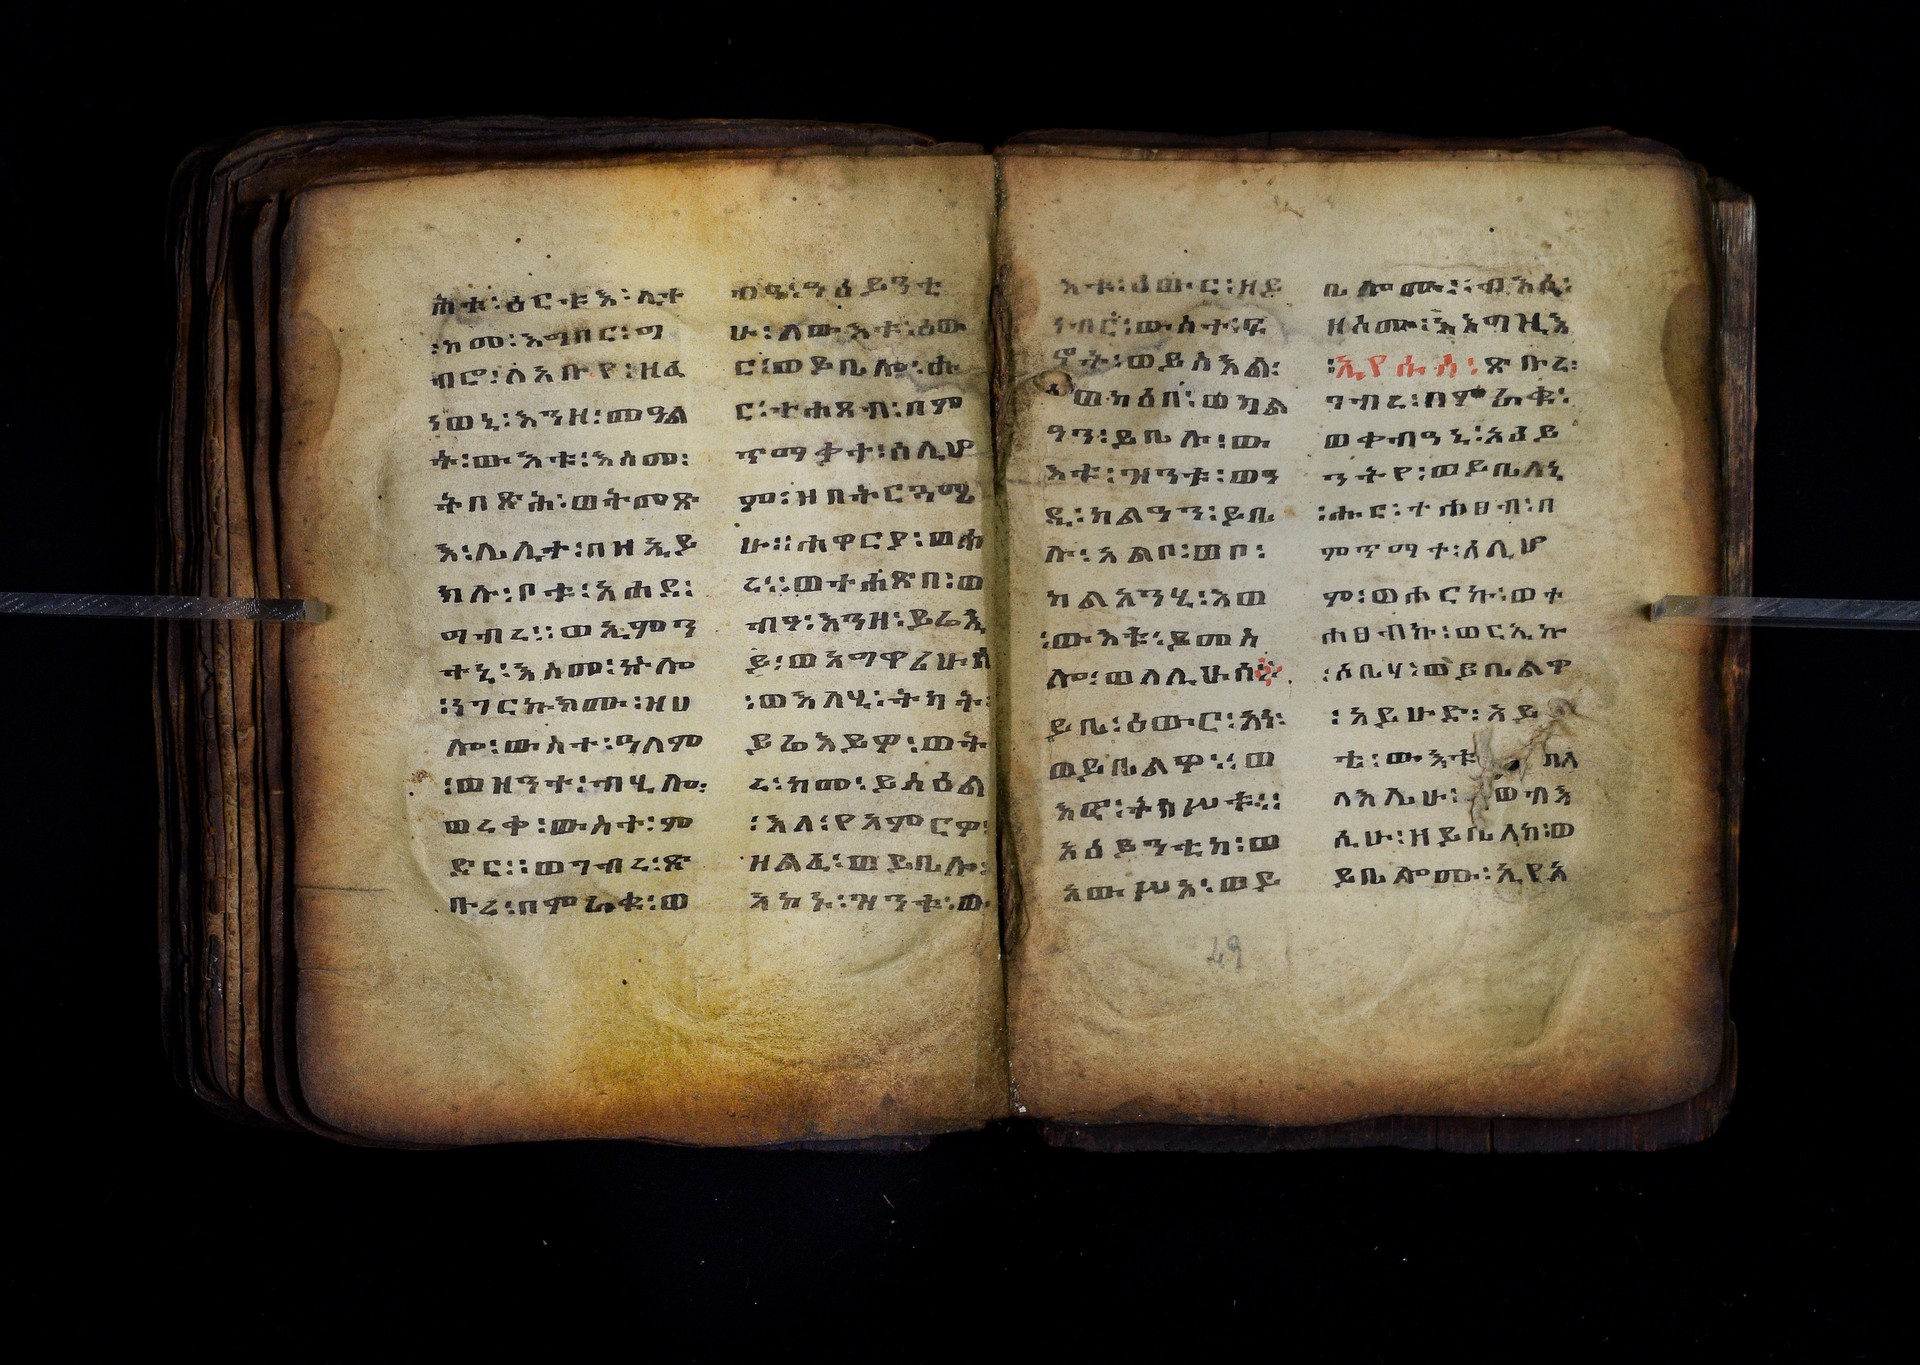 ሕቱ፡ ዕርቱእ፡ ሊተ
፡ከመ፡እግበር፡ግ
ብሮ፡ለአቡየ፡ዘፈ
ነወኒ፡እንዘ፡መዓል
ት፡ውእቱ፡እስመ፡
ትበጽሕ፡ወትመጽ
እ፡ሌሊት፡በዝኢይ
ክሉ፡ቦቱ፡አሐደ፡
ግብረ፡፡ወኢምን
ተኒ፡እስመ፡ሶሎ
፡ነገርኩክሙ፡ዝሀ
ሎ፡ውስተ፡ዓለም
፡ወዘንተ፡ብሂሎ፡
ወረቀ፡ውስተ፡ም
ድር፡፡ወገብረ፡ጽ
ቡረ፡በምራቁ፡ወ
ብዓ፡ዓዕይንቲ
ሁ፡ለውእቱ፡ዕው
ር፡ወይቤሎ፡ሑ
ር፡ተሐጸብ፡በም
ጥማቃተ፡ሰሊሆ
ም፡ዝበትርጓሜ
ሁ፡፡ሐዋርያ፡ወሖ
ረ፡፡ወተሐጽበ፡ወ
ብዓ፡እንዘ፡ይሬኢ
ይ፡ወአግዋረሁሰ
፡ወእለሂ፡ትካት፡
ይሬእይዎ፡ወት
ረ፡ከመ፡ይስዕል
፡እለ፡የአምርዎ፡
ዘልፈ፡ወይቤሎ፡
አኮኑ፡ዝንቱ፡ው
እቱ፡ዕውር፡ዘይ
ነብር፡ውስተ፡ፍ
ኖት፡ወይስእል፡
ወክዕበ፡ወካል
ዓን፡ይቤሉ፡ው
እቱ፡ዝንቱ፡ወዓ
ዲ፡ካልዓን፡ይቤ
ሉ፡አልቦ፡ወቦ፡
ካልአንሂ፡እወ
፡ውእቱ፡ይመስ
ሎ፡ወለሊሁሰ፡
ይቤ፡ዕውር፡አነ፡
ወይቤልዎ፡፡ወ
እፎ፡ትከሥቱ፡፡
አዕይንቲከ፡ወ
አውሥአ፡ወይ
ቤሎሙ፡፡ብእሲ፡
ዘስሙ፡እአግዚእ
፡ኢየሱስ፡ጽቡረ፡
ገብረ፡በምራቁ፡
ወቀብዓኒ፡አዕይ
ንትየ፡ወይቤለኒ
፡ሑር፡ተሐፀብ፡በ
ምጥማተ፡ሰሊሆ
ም፡ወሖርኩ፡ወተ
ሐፀብኩ፡ወርኢኩ
፡ሰቤሃ፡ወይቤልዋ
፡አይሁድ፡አይ
ቴ፡ውእቱ ብእ
ለእሊሁ፡ወብእ
ሲሁ፡ዘይቤለከ፡ወ
ይቤሎሙ፡ኢየአ
49